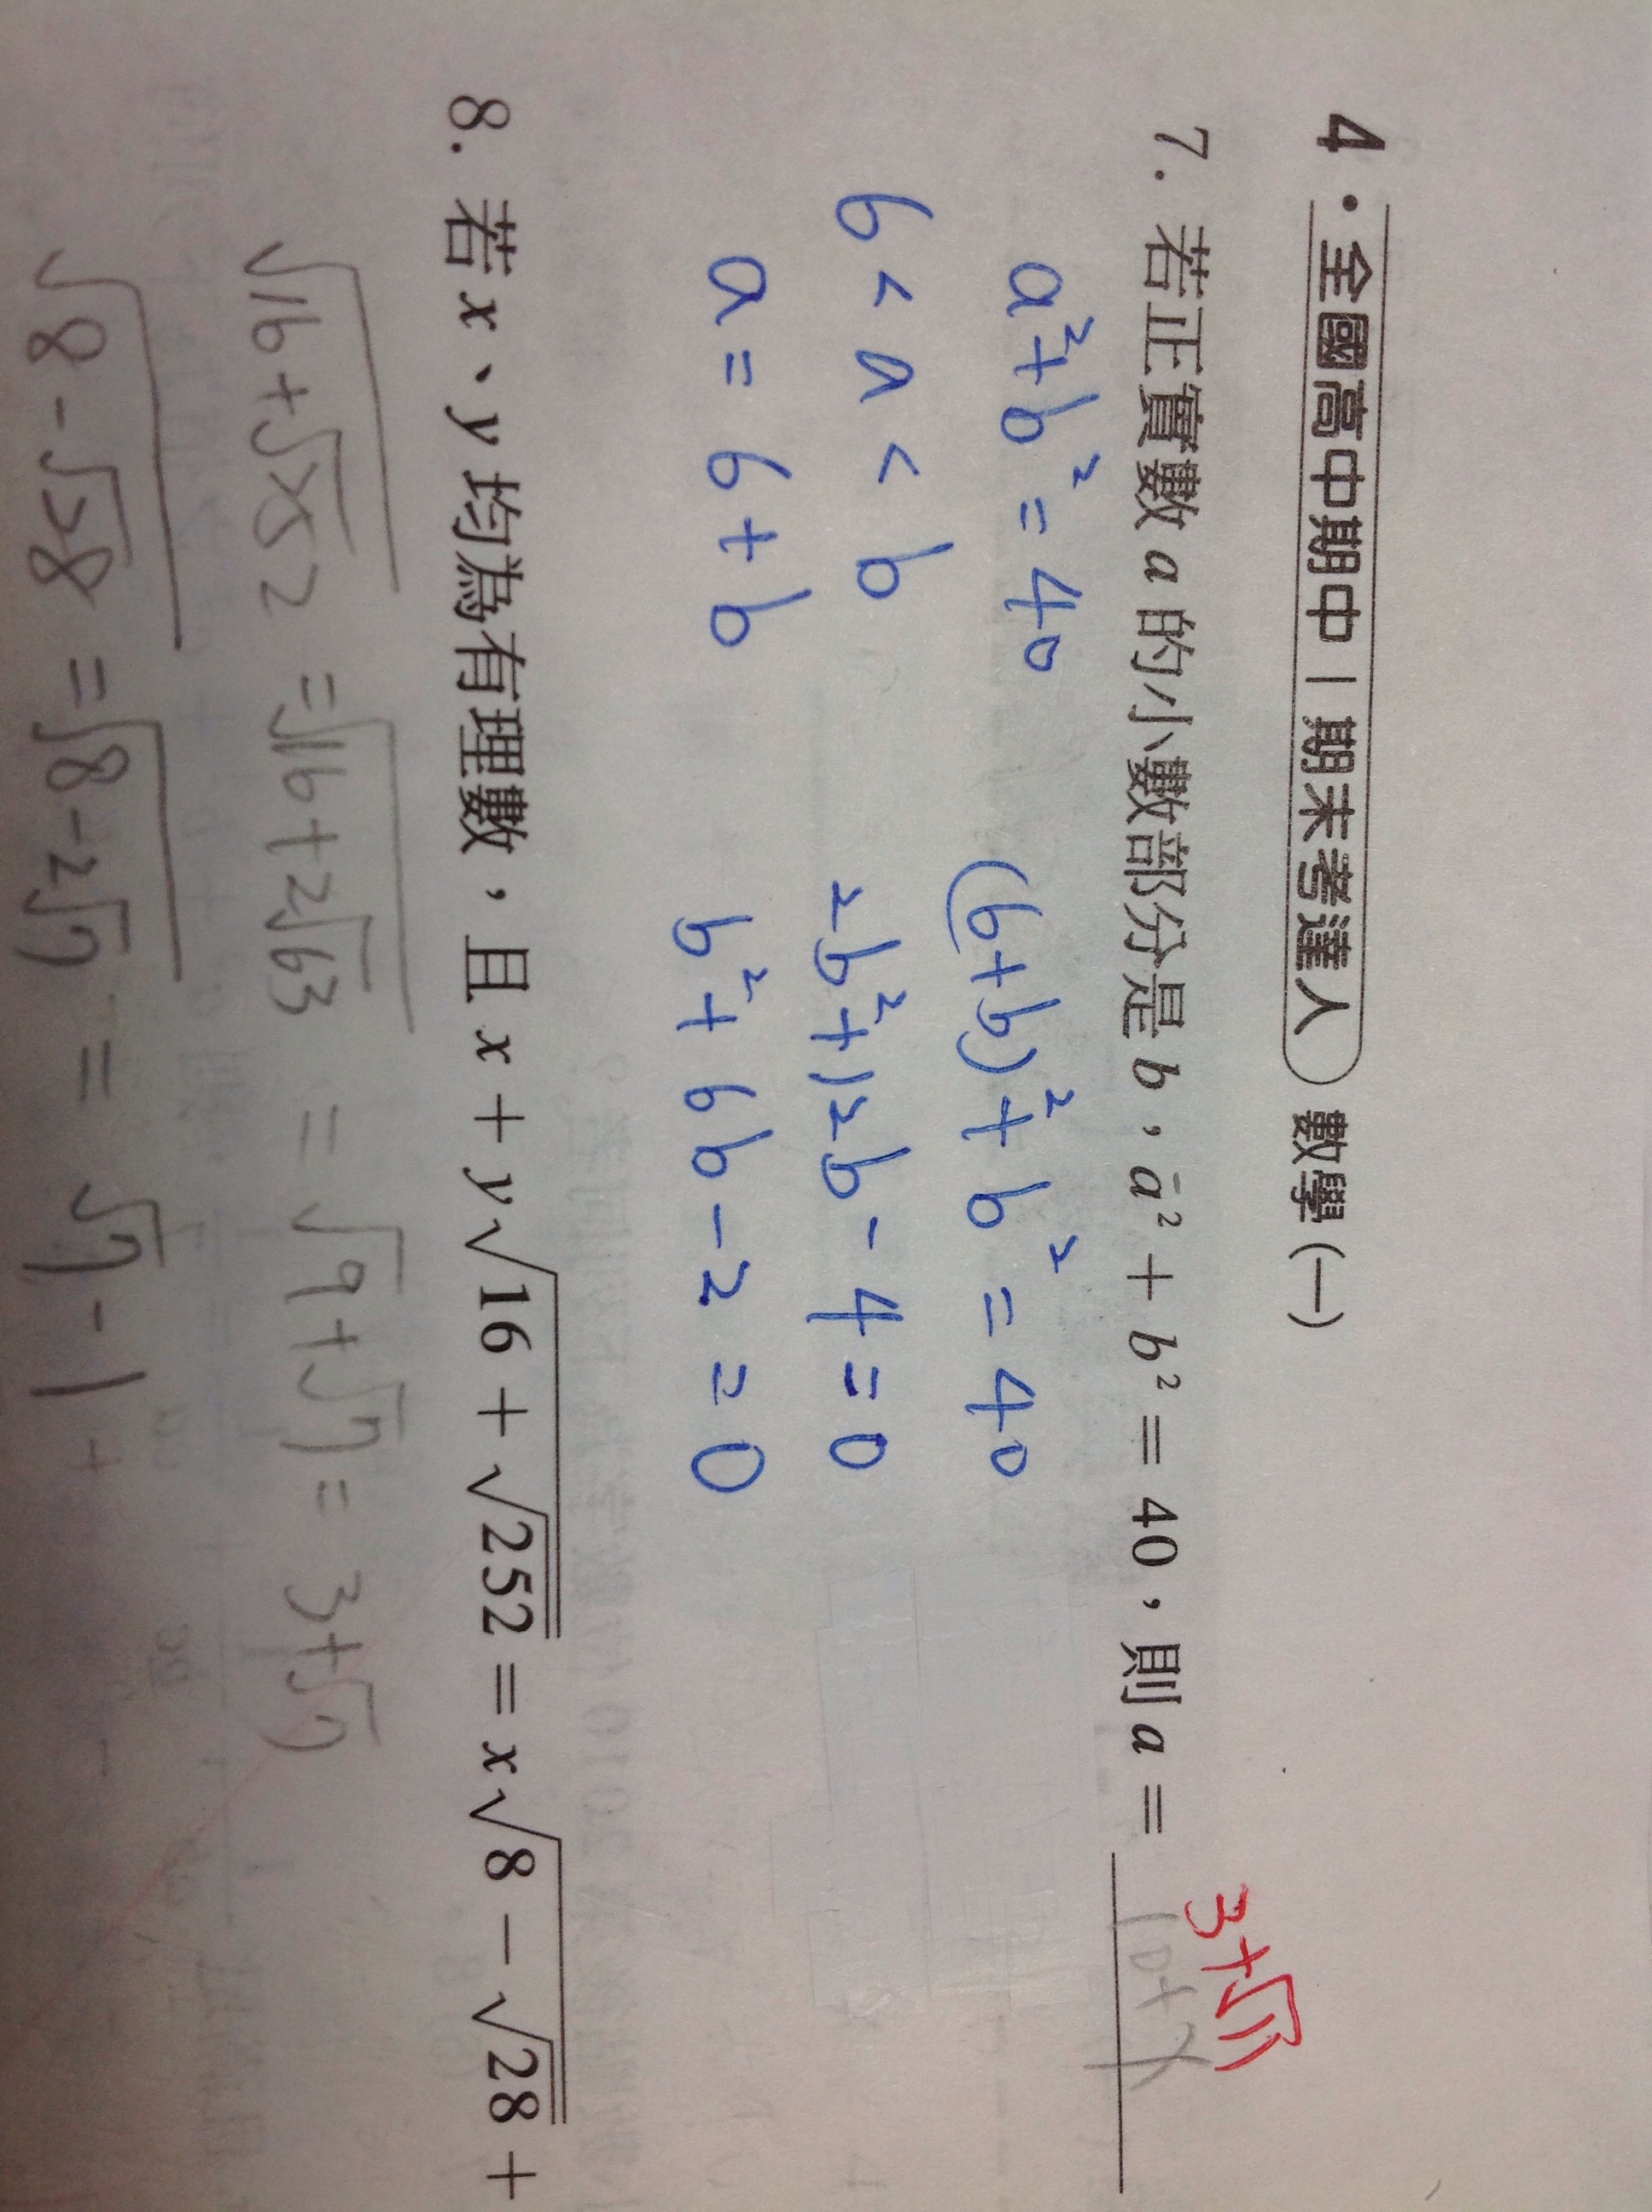 4・全國高中期中｜期末考達人 數學(一)
7. 若正實數 a 的小數部分是 b，a² + b² = 40，則 a =
3+√11
a²+b²=40
(6+b)²+b²=40
6<a<b
2b²+12b-4=0
a=6+b
b²+6b-2=0
8. 若 x、y 均為有理數，且 x + y√(16 + √252) = x√(8 − √28) +
√(16+√252) = √(16+2√63) = √9+√7 = 3+√7
√(8-√28) = √(8-2√7) = √7-1